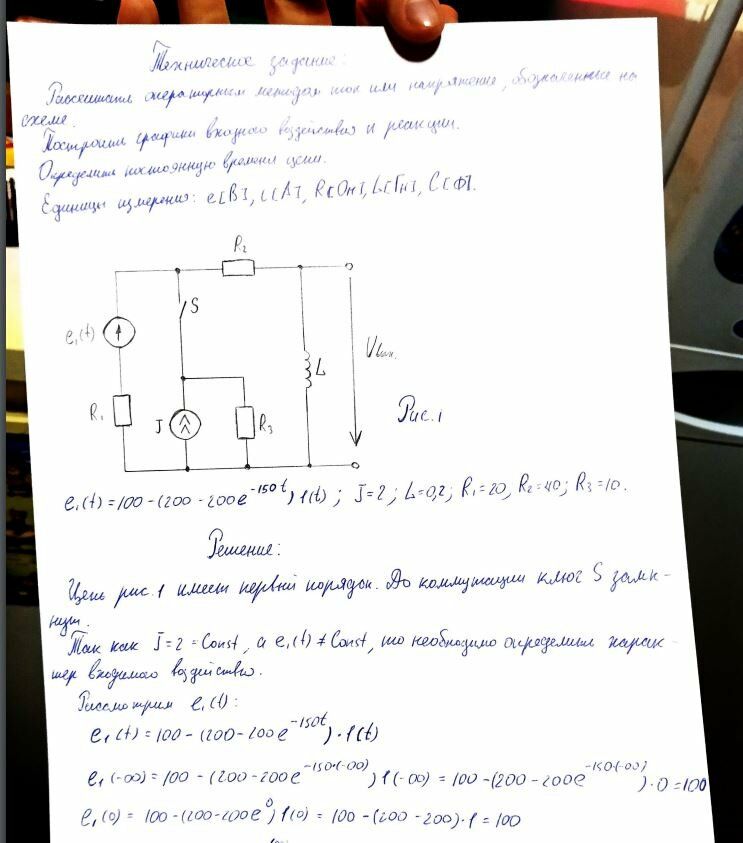 Техническое задание:
Рассчитать операторным методом ток или напряжение, обозначенные на
схеме.
Построить графики входного воздействия и реакции.
Определить постоянную времени цепи.
Единицы измерения: e[В], i[А], R[Ом], L[Гн], C[Ф].
R₂
S
e₁(t)
L
Uвых.
R₁
J
R₃
Рис.1
e₁(t) = 100 - (200 - 200e^{-150t}) 1(t) ; J=2 ; L=0,2; R₁=20, R₂=40; R₃=10.
Решение:
Цепь рис.1 имеет первый порядок. До коммутации ключ S замк-
нут.
Так как J=2=Const, а e₁(t) ≠ Const, то необходимо определить харак-
тер входного воздействия.
Рассмотрим e₁(t):
e₁(t) = 100 - (200 - 200e^{-150t}) · 1(t)
e₁(-∞) = 100 - (200 - 200e^{-150·(-∞)}) 1(-∞) = 100 - (200 - 200e^{-150·(-∞)}) · 0 = 100
e₁(0) = 100 - (200 - 200e^{0}) 1(0) = 100 - (200 - 200) · 1 = 100